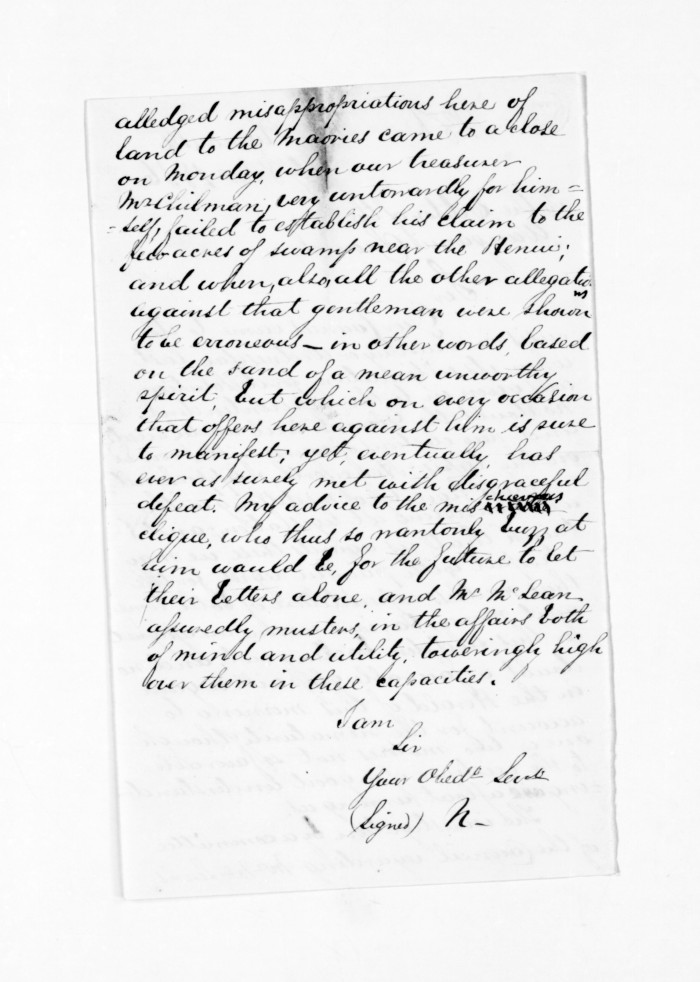 alledged misappropriations here of
land to the Maories came to a close
on Monday, when our treasurer
Mr Chilman, very untowardly for him=
=self, failed to establish his claim to the
few acres of swamp near the Henui;
and when, also, all the other allegations
against that gentleman were shown
to be erroneous — in other words, based
on the sand of a mean unworthy
spirit, but which on every occasion
that offers here against him is sure
to manifest; yet, eventually, has
ever as surely met with disgraceful
defeat. My advice to the mischievous
clique, who thus so wantonly buzz at
him would be, for the future to let
their betters alone, and Mr McLean
assuredly musters, in the affairs both
of mind and utility, toweringly high
over them in these capacities.
I am
Sir
Your Obedt Servt
(Signed) N—